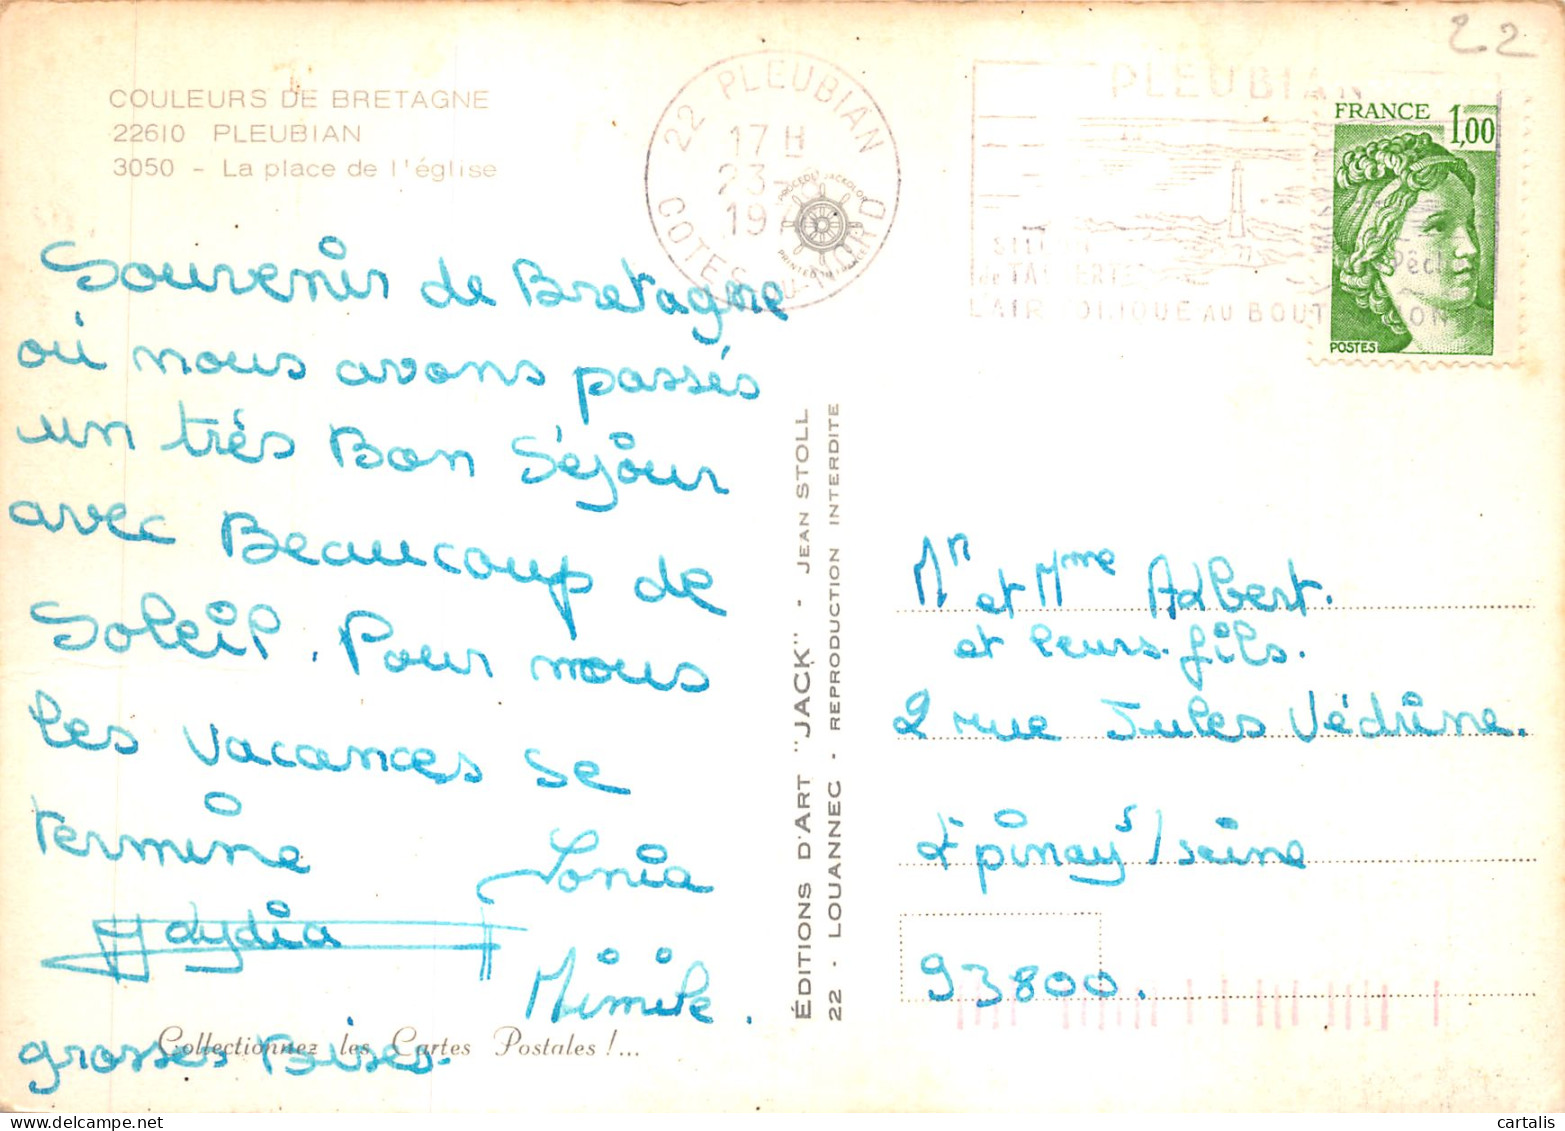 22
COULEURS DE BRETAGNE
22610 PLEUBIAN
3050 - La place de l'église
22 PLEUBIAN
17 H
23 -
COTES-DU-NORD
PROCEDE JACKOLOR
PLEUBIAN
L'AIR IODIQUE AU BOUT
FRANCE 1,00
POSTES
Souvenir de Bretagne
où nous avons passés
un très Bon Séjour
avec Beaucoup de
Soleil. Pour nous
les vacances se
termine
Sonia
Lydia
Mimile.
grosses Bises.
Collectionnez les Cartes Postales !...
ÉDITIONS D'ART "JACK" - JEAN STOLL
22 - LOUANNEC - REPRODUCTION INTERDITE
Mr et Mme Adbert.
et leurs fils.
2 rue Jules Védrine.
Epinay s/seine
93800.
www.cartespostales.com
cartalis